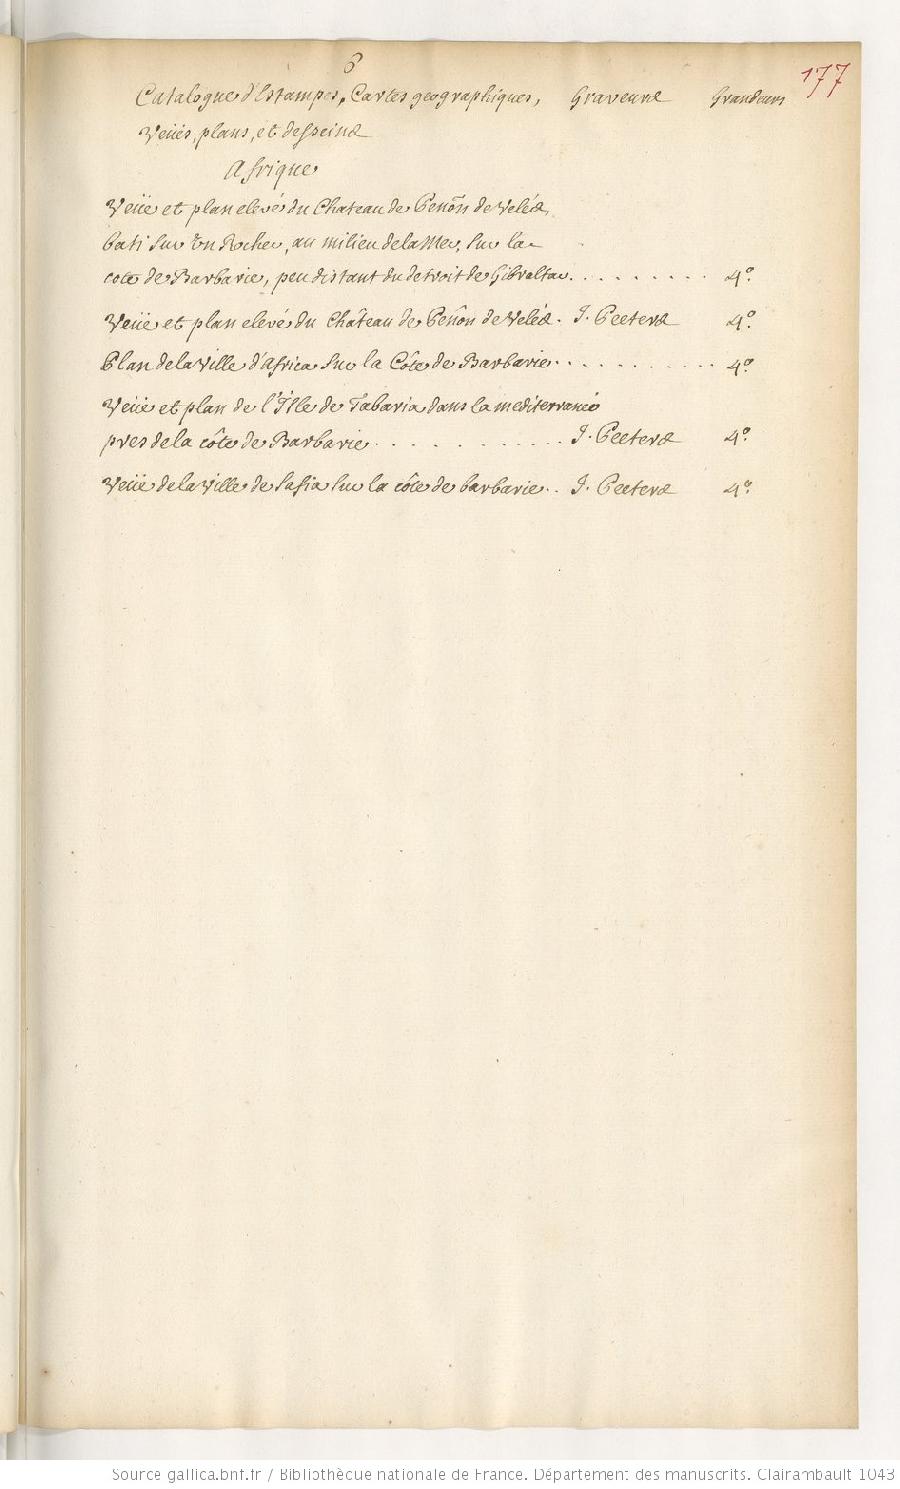 6
177
Catalogue d'Estampes, Cartes geographiques, Graveurs Grandeurs
Veües, plans, et desseins
Afrique
Veüe et plan elevé du Chateau de Penõn de Veléz,
bati sur un Rocher, au milieu de la Mer, sur la
cote de Barbarie, peu distant du detroit de Gibraltar. . . . . . . . . 4º.
Veüe et plan elevé du Château de Penõn de Veléz. J. Peeters 4º.
Plan de la Ville d'Africa sur la Côte de Barbarie. . . . . . . . . . . 4º.
Veüe et plan de l'Isle de Tabaria dans la mediterranée
pres de la côte de Barbarie . . . . . . . . . J. Peeters 4º.
Veüe de la Ville de Safia sur la côte de barbarie. . J. Peeters 4º.
Source gallica.bnf.fr / Bibliothèque nationale de France. Département des manuscrits. Clairambault 1043